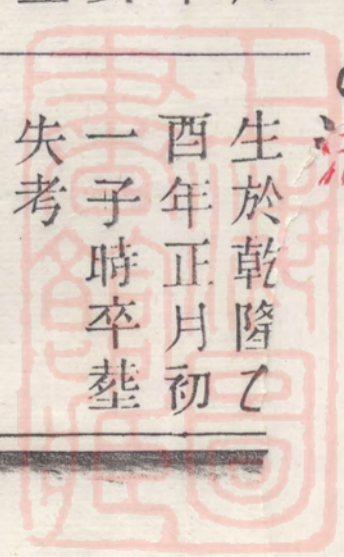 生於乾隆乙
酉年正月初
一子時卒塟
失考